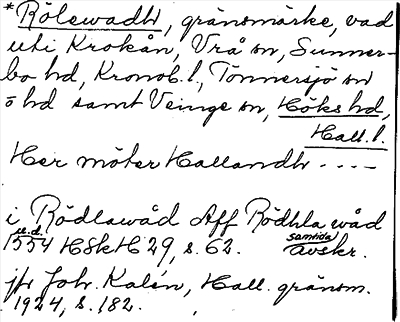 *Rölewadh, gränsmärke, vad
uti Krokån, Vrå sn, Sunner-
bo hd, Kronob. l., Tönnersjö sn
o hd samt Veinge sn, Höks hd,
Hall. l.
Her möter Hallandh ----
i Rödlawåd Aff Rödhla wåd
u.d.
1554 HSkH 29, s. 62. samtida avskr.
jfr Joh. Kalén, Hall. gränsm.
1924, s. 182.